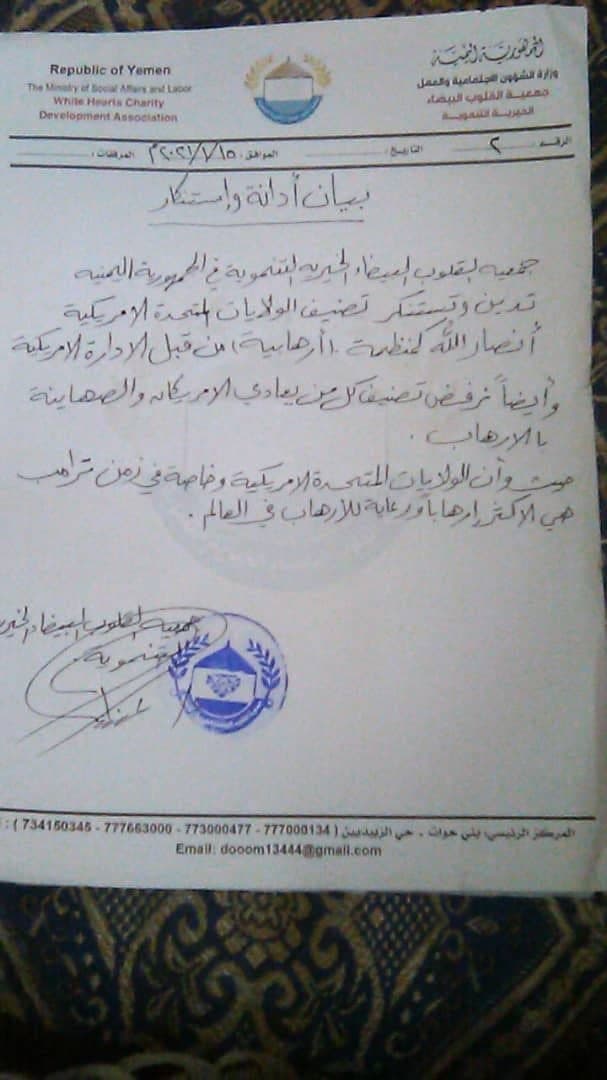 Republic of Yemen
The Ministry of Social Affairs and Labor
White Hearts Charity
Development Association
الجمهورية اليمنية
وزارة الشؤون الاجتماعية والعمل
جمعية القلوب البيضاء
الخيرية التنموية
الرقم: ٢ التاريخ: الموافق: ٢٠٢١/١/١٥م المرفقات:
بيان أدانة وإستنكار
جمعيه القلوب البيضاء الخيريه التنموية في الجمهورية اليمنيه
تدين وتستنكر تصنيف الولايات المتحدة الامريكية
أنصار الله كمنظمة (أرهابية) من قبل الادارة الامريكية
وأيضاً نرفض تصنيف كل من يعادي الامريكان والصهاينة
بالارهاب .
حيث وأن الولايات المتحدة الامريكية وخاصة في زمن ترامب
هي الاكثر إرهاباً ورعاية للأرهاب في العالم .
جمعيه القلوب البيضاء الخيريه
التنموية
المركز الرئيسي: بني حوات - حي الزبيديين ( 777000134 - 773000477 - 777663000 - 734150345 ) :
Email: dooom13444@gmail.com